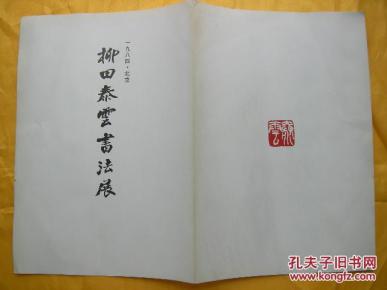 一九八四·北京
柳田泰雲書法展
泰雲
孔夫子旧书网